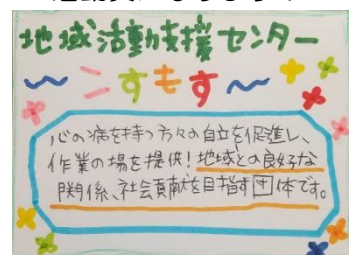 地域活動支援センター
～こすもす～
心の病を持つ方々の自立を促進し、
作業の場を提供！地域との良好な
関係、社会貢献を目指す団体です。